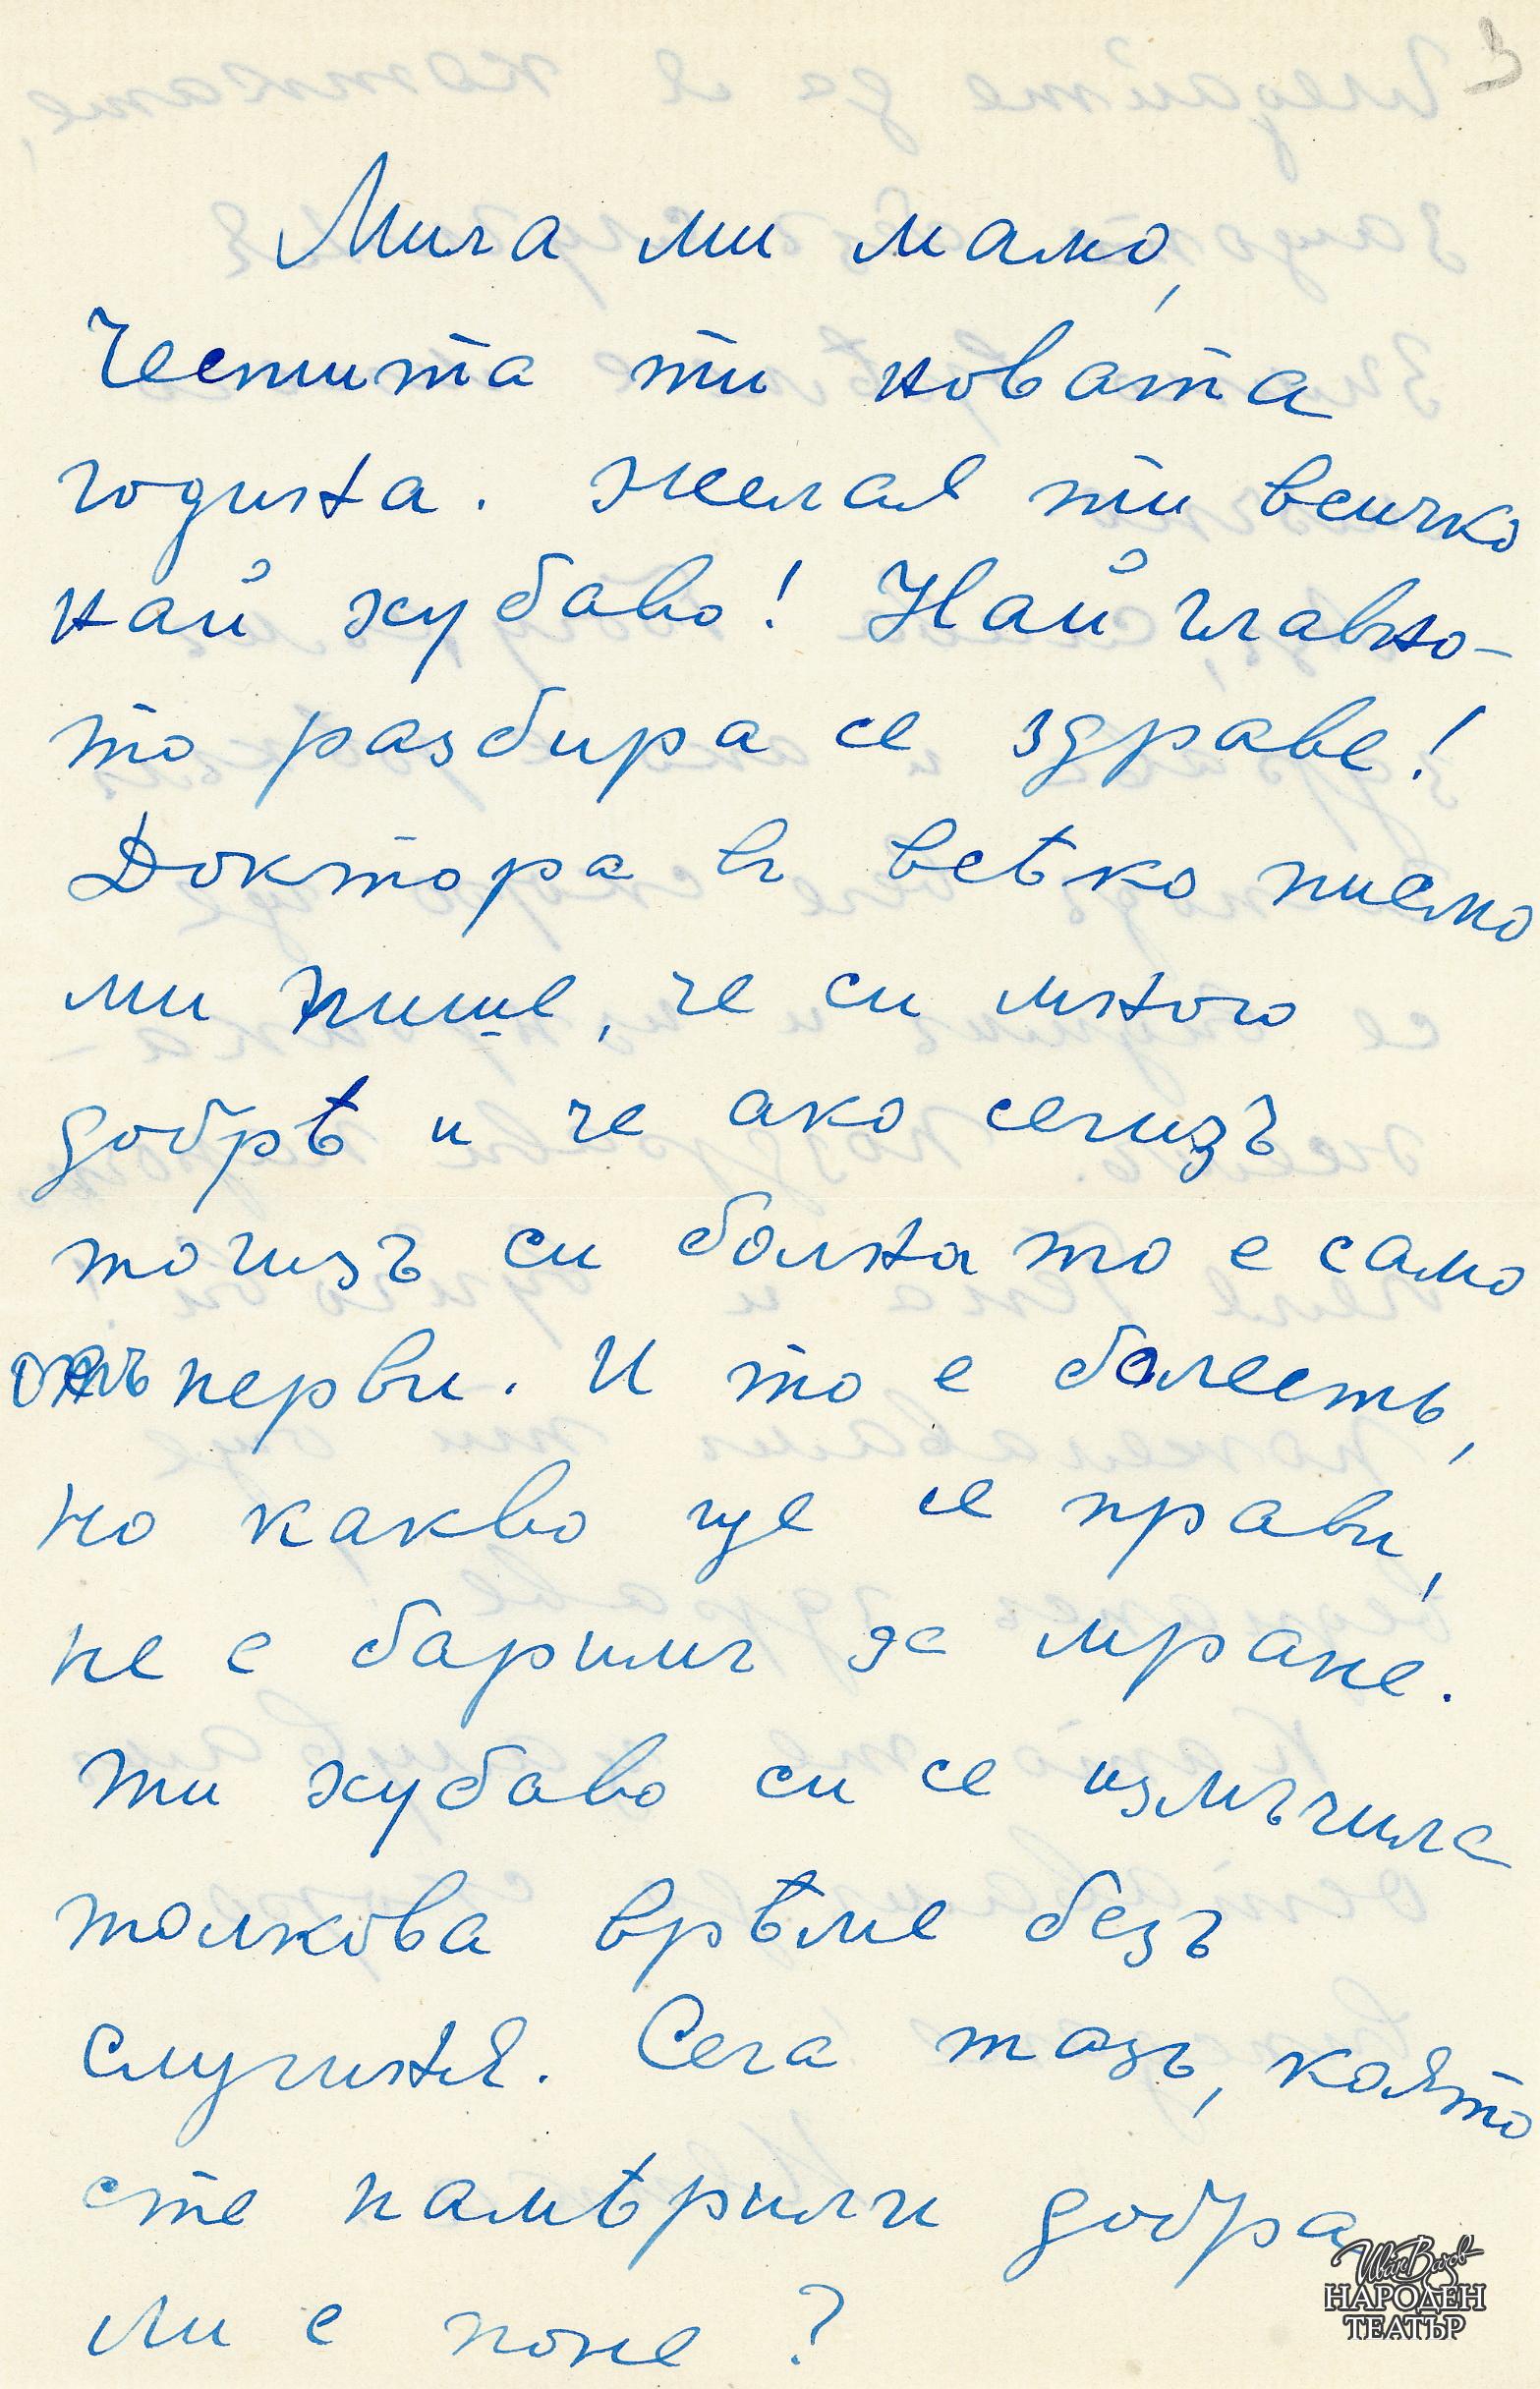 Мила ми мамо,
Честита ти новата
година. Желая ти всичко
най хубаво! Най главно-
то разбира се здраве!
Доктора въ всѣко писмо
ми пише, че си много
добрѣ и че ако сегизъ
тогизъ си болна то е само
отъ нерви. И то е болесть,
но какво ще се прави,
не е баримъ за мране.
Ти хубаво си се измъчила
толкова врѣме безъ
слугиня. Сега тазъ, която
сте намѣрили добра
ли е поне?
Иван Вазов
НАРОДЕН
ТЕАТЪР